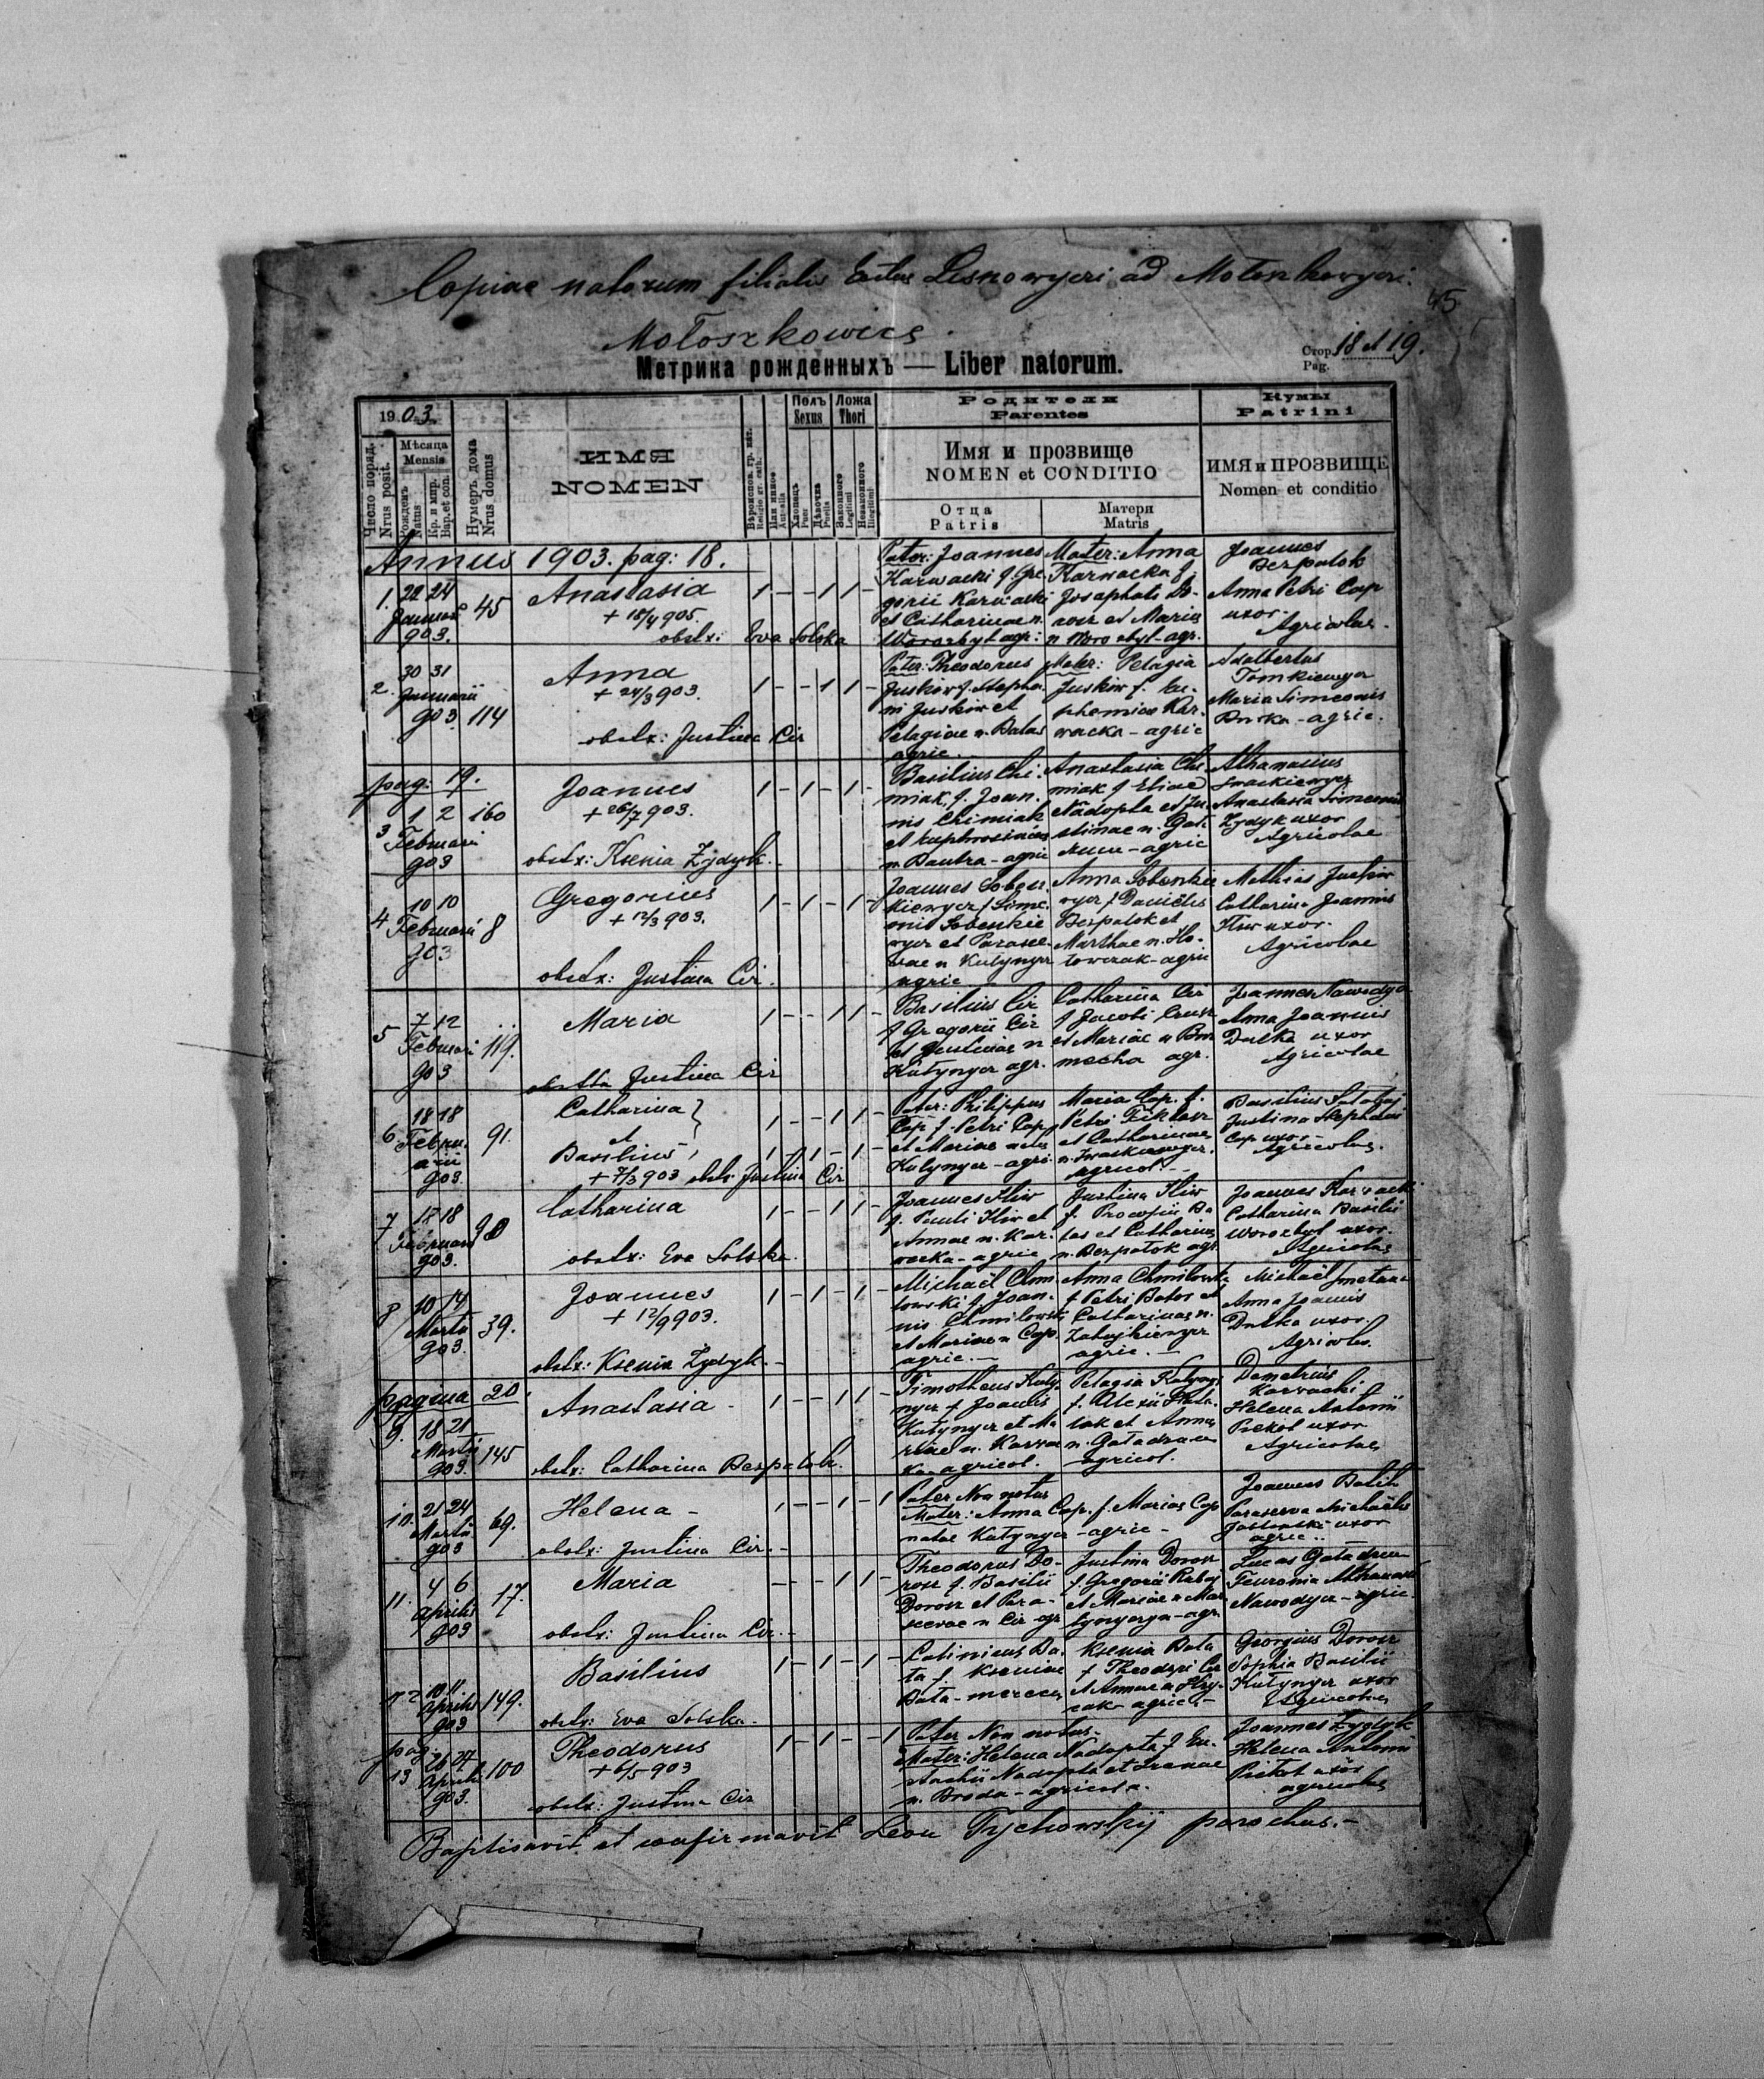 Copiae natorum filialis Lisnowyczi ad Motoszkowyczi.
45
Motoszkowice
Стор. 18 et 19.
Pag.
Метрика рожденныхъ — Liber natorum.
1903
Число поряд. Nrus posit.
Мѣсяца Mensis
Рожденъ Natus
Кр. и мир. Bap. et con.
Нумеръ дома Nrus domus
ИМЯ
NOMEN
Полъ Sexus
Ложа Thori
Хлопець Puer
Дѣвочка Puella
Законного Legitimi
Незаконного Illegitimi
Родители
Parentes
Имя и прозвище
NOMEN et CONDITIO
Отца
Patris
Матери
Matris
Кумы
Patrini
ИМЯ и ПРОЗВИЩЕ
Nomen et conditio
Annus 1903. pag: 18.
1. 22 24 Januarii 903. 45
Anastasia
+ 18/4 905.
obstx: Eva Solska
Pater: Joannes
Karwacki f. Gre-
gorii Karwacki
et Catharinae n.
Worozbyt agr:
Mater: Anna
Karwacka f.
Josaphati Do-
rosz et Mariae
n Worozbyt - agr.
Joannes
Bezpalok
Anna Petri Cap
uxor -
Agricolae -
2. 30 31 Januarii 903. 114
Anna
+ 24/3 903.
obstx: Justina Cir
Pater: Theodorus
Juskiw f. Stepha-
ni Juskiw et
Pelagiae n. Balas
agric.
Mater: Pelagia
Juskiw f. Eu-
phemiae Kar-
wacka - agric
Adalbertus
Tomkiewycz
Maria Simeonis
agric.
pag: 19.
3 1 2 Februarii 903 160
Joannes
+ 26/7 903.
obstx: Ksenia Zydyk.
Basilius Chi-
miak, f. Joan-
nis Chimiak
et Euphrosinae
n. Bantra - agric
Anastasia Chi-
miak f Eliae
Nadopta et Ju-
stinae n. Gata-
agric
Athanasius
Iwaskiewycz
Anastasia Simeonis
Zydyk uxor
Agricolae
4 10 10 Februarii 903 8
Gregorius
+ 12/3 903.
obstx: Justina Cir.
Joannes Soben-
kiewycz f Sime-
onis Sobenkie-
wycz et Parasce-
vae n Kutynycz
agric
Anna Sobenkie-
wycz f Danielis
Bezpalok et
Marthae n. Ho-
lowczak - agric
Mathias Juskiw
Catharina Joannis
Iliw uxor.
Agricolae
5 7 12 Februarii 903 119.
Maria
Justina Cir
Basilius Cir
f Gregorii Cir
et Justinae n
Kutynycz agr.
Catharina Cir
f Jacobi
et Mariae n
agr.
Joannes Nawodycz
Anna Joannis
Dutka uxor
Agricolae
6 18 18 Februarii 903. 91.
Catharina
et
Basilius
+ 7/3 903 obstx: Justina Cir
Pater: Philippus
Cap f. Petri Cap
et Mariae natae
Kutynycz - agric.
Maria Cap. f.
Petri
et Catharinae
n. Iwaskiewycz.
agricol. -
Basilius
Justina Stephani
Cap uxor -
Agricolae.
7 18 18 Februarii 903. 90
Catharina
obstx: Eva Solska.
Joannes Iliw
f. Pauli Iliw et
Annae n. Kar-
wacka - agric
Justina Iliw
f. Procopii Ba-
las et Catharinae
n. Bezpalok agr.
Joannes Karwacki
Catharina Basilii
Worozbyt uxor.
Agricolae
8 10 14 Martii 903. 39.
Joannes
+ 12/9 903.
obstx: Ksenia Zydyk.
Michaël Chmi-
lowski f Joan-
nis Chmilowski
et Mariae n Cap.
agric. -
Anna Chmilowska
f Petri Balas et
Catharinae n.
agric. -
Michaël Smetana
Anna Joannis
Dutka uxor.
Agricolae.
pagina 20.
9. 18 21 Martii 903. 145
Anastasia -
obstx: Catharina Bezpalok.
Timotheus Kuty-
nycz f Joannis
Kutynycz et Ma-
riae n. Karwac-
ka - agricol.
Pelagia Kutynycz
f. Alexii
et Annae
n. Gatadza
agricol.
Demetrius
Karwacki
Helena Antonii
Piekot uxor
Agricolae
10. 21 24 Martii 903 69.
Helena -
obstx: Justina Cir. -
Pater Non notus
Mater: Anna Cap. f. Mariae Cap
natae Kutynycz - agric -
Joannes Balik
Parasceva Michaëlis
uxor
agric.
11. 4 6 Aprilis 903 17.
Maria
obstx: Justina Cir. -
Theodorus Do-
rosz f. Basilii
Dorosz et Para-
scevae n Cir agr
Justina Dorosz
f Gregorii
et Mariae n Mar-
- agr.
Lucas
Feuronia Athanasii
Nawodycz - agric.
12 10 11. Aprilis 903 149.
Basilius
obstx: Eva Solska.
Ba-
ta f. Kseniae
Bata -
Ksenia Bata
f Theodori Cir
et Annae n Hry-
cak - agric. -
Georgius Dorosz
Sophia Basilii
Kutynycz uxor
Agricolae
pag.
13 26 27 Aprilis 903. 100
Theodorus
+ 6/5 903
obstx: Justina Cir
Pater Non notus.
Mater: Helena Nadopta f Eu-
stachii Nadopta et Irenae
n. Broda - agricola.
Joannes Zydyk
Helena Antonii
Piekot uxor
agricolae
Baptisavit et confirmavit Leon Tychowskij parochus. -